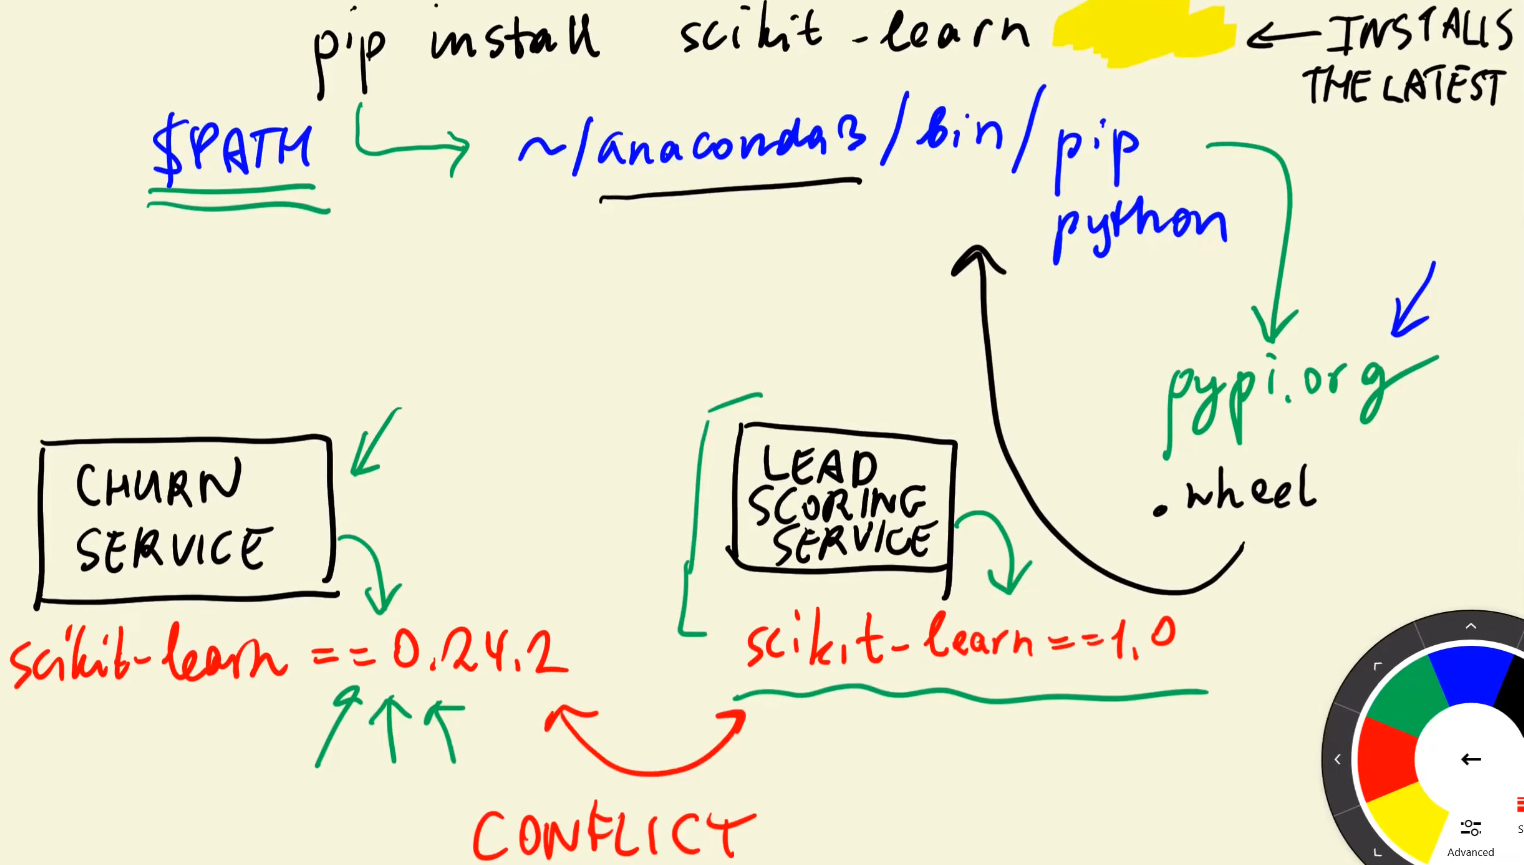 pip install scikit-learn ← INSTALLS
THE LATEST
$PATH ~/anaconda3/bin/pip
python
pypi.org
.wheel
CHURN
SERVICE
LEAD
SCORING
SERVICE
scikit-learn == 0.24.2
scikit-learn==1.0
CONFLICT
Advanced
S